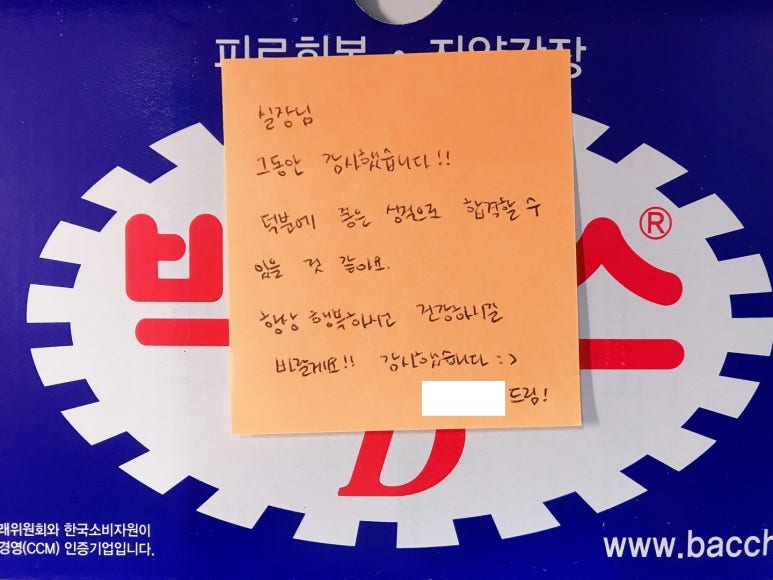 피로회복 · 자양강장
실장님
그동안 감사했습니다!!
덕분에 좋은 성적으로 합격할 수
있을 것 같아요.
항상 행복하시고 건강하시길
바랄게요!! 감사했습니다 :>
드림!
®
스
D
래위원회와 한국소비자원이
경영(CCM) 인증기업입니다.
www.bacch